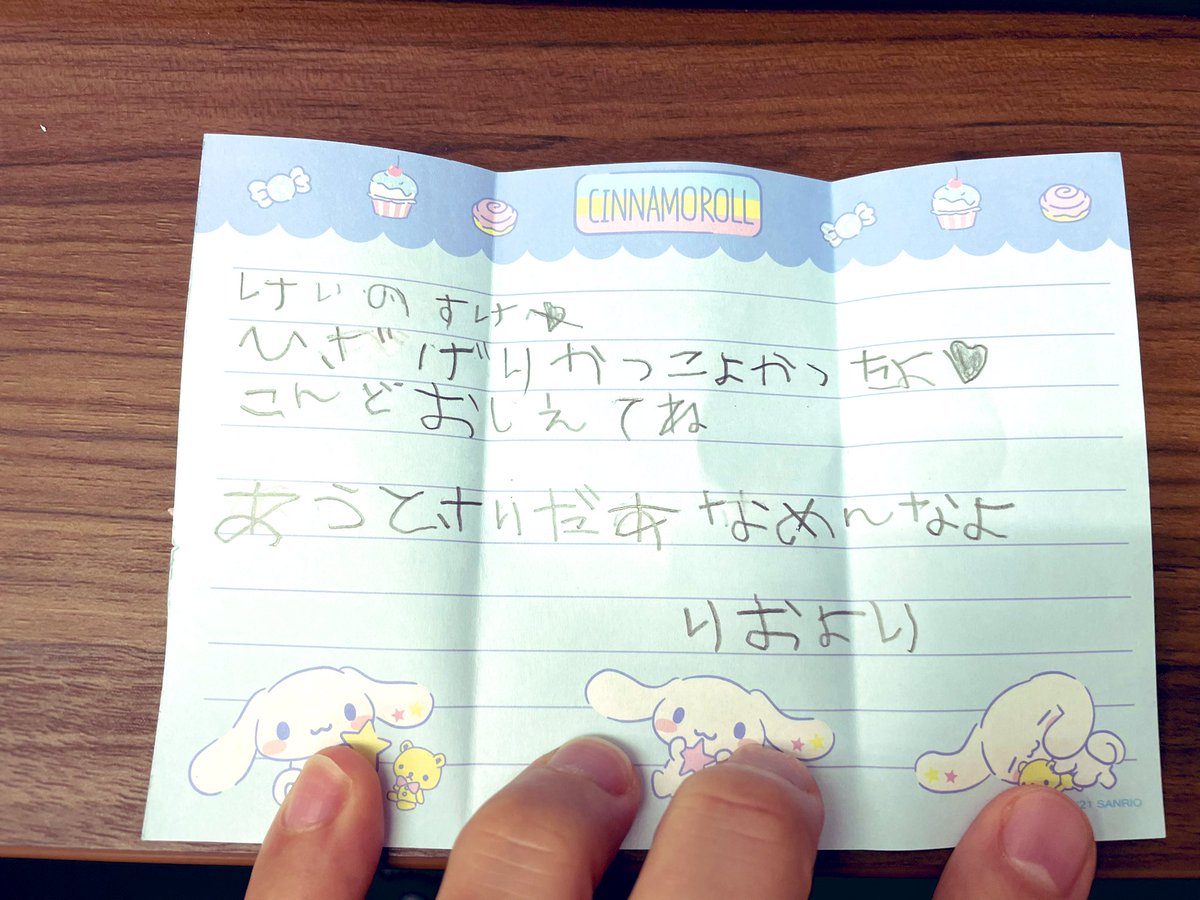 CINNAMOROLL
けいのすけ
ひだげりかっこよかったよ♥
こんどおしえてね
あうとさいだあなめんなよ
りおより
21 SANRIO